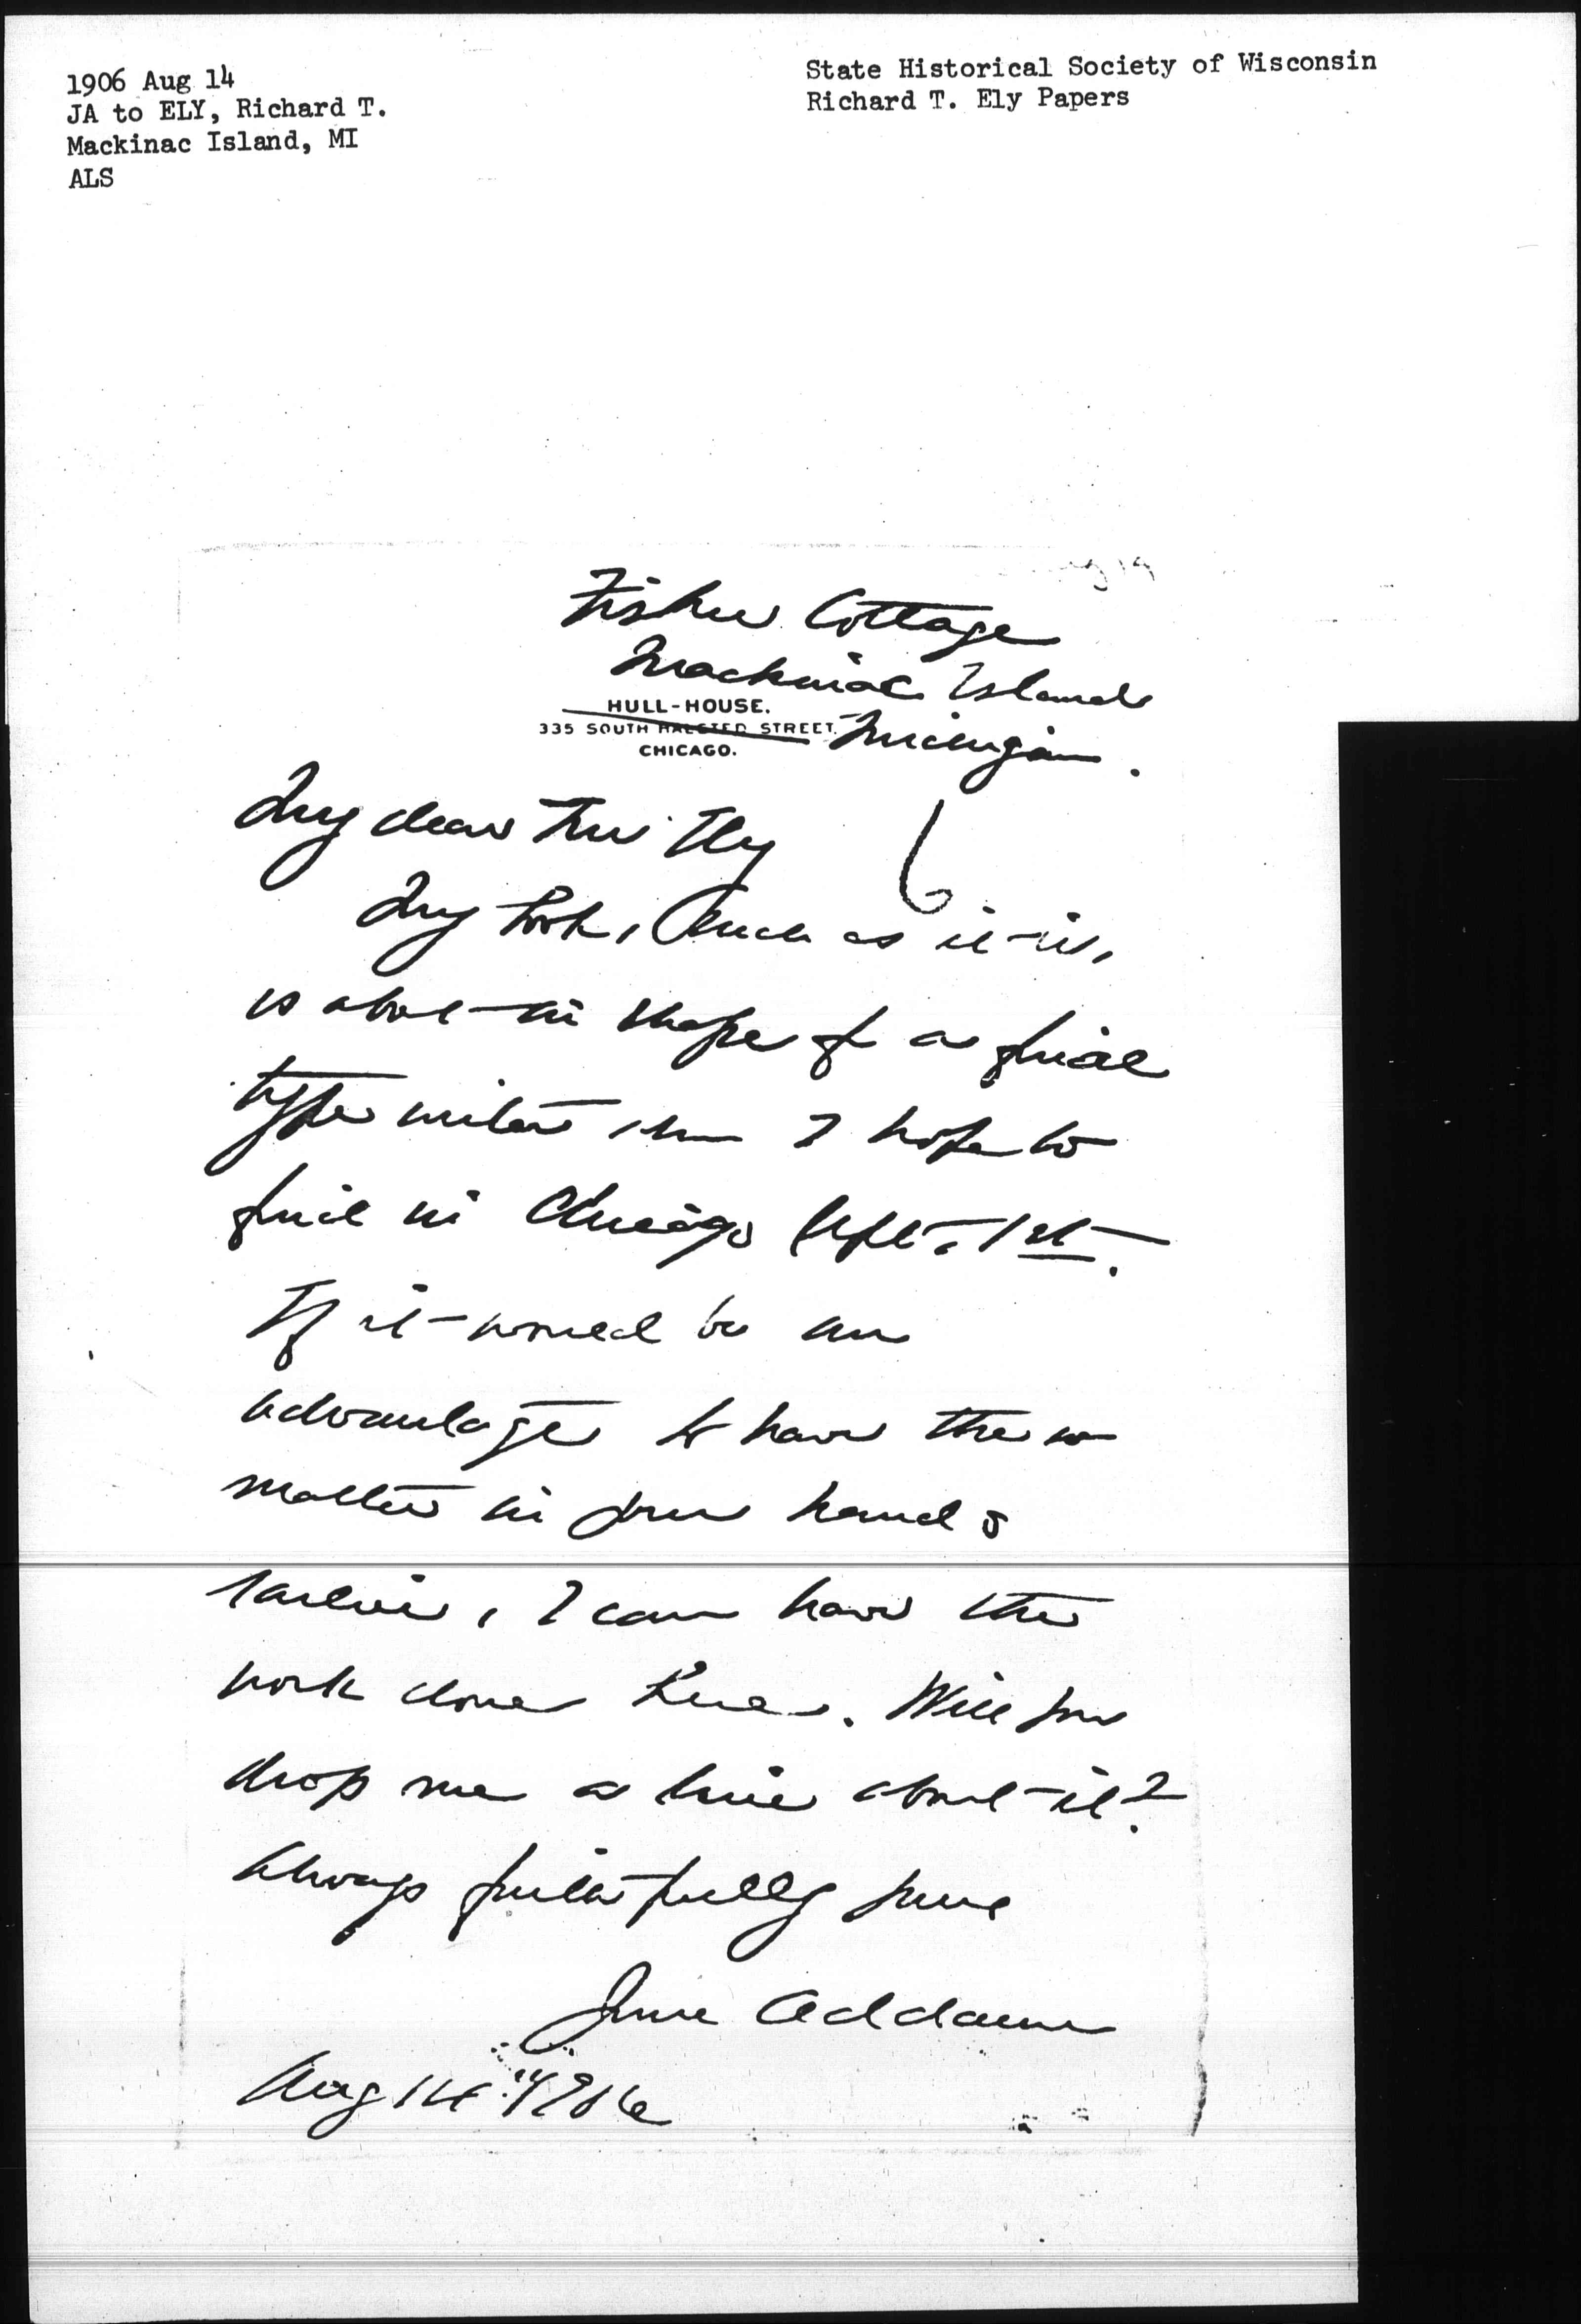 1906 Aug 14
JA to ELY, Richard T.
Mackinac Island, MI
ALS
State Historical Society of Wisconsin
Richard T. Ely Papers
Fisher Cottage
Mackinac Island
HULL-HOUSE.
335 SOUTH HALSTED STREET.
Michigan.
CHICAGO.
My dear Mr Ely
My book, such as it is,
is about in shape for a final
type writer whom I hope to
find in Chicago Sept. 1st.
If it would be an
advantage to have the
matter in your hands
earlier, I can have the
work done here. Will you
drop me a line about it?
Always faithfully yours
Jane Addams
Aug 14" 1906